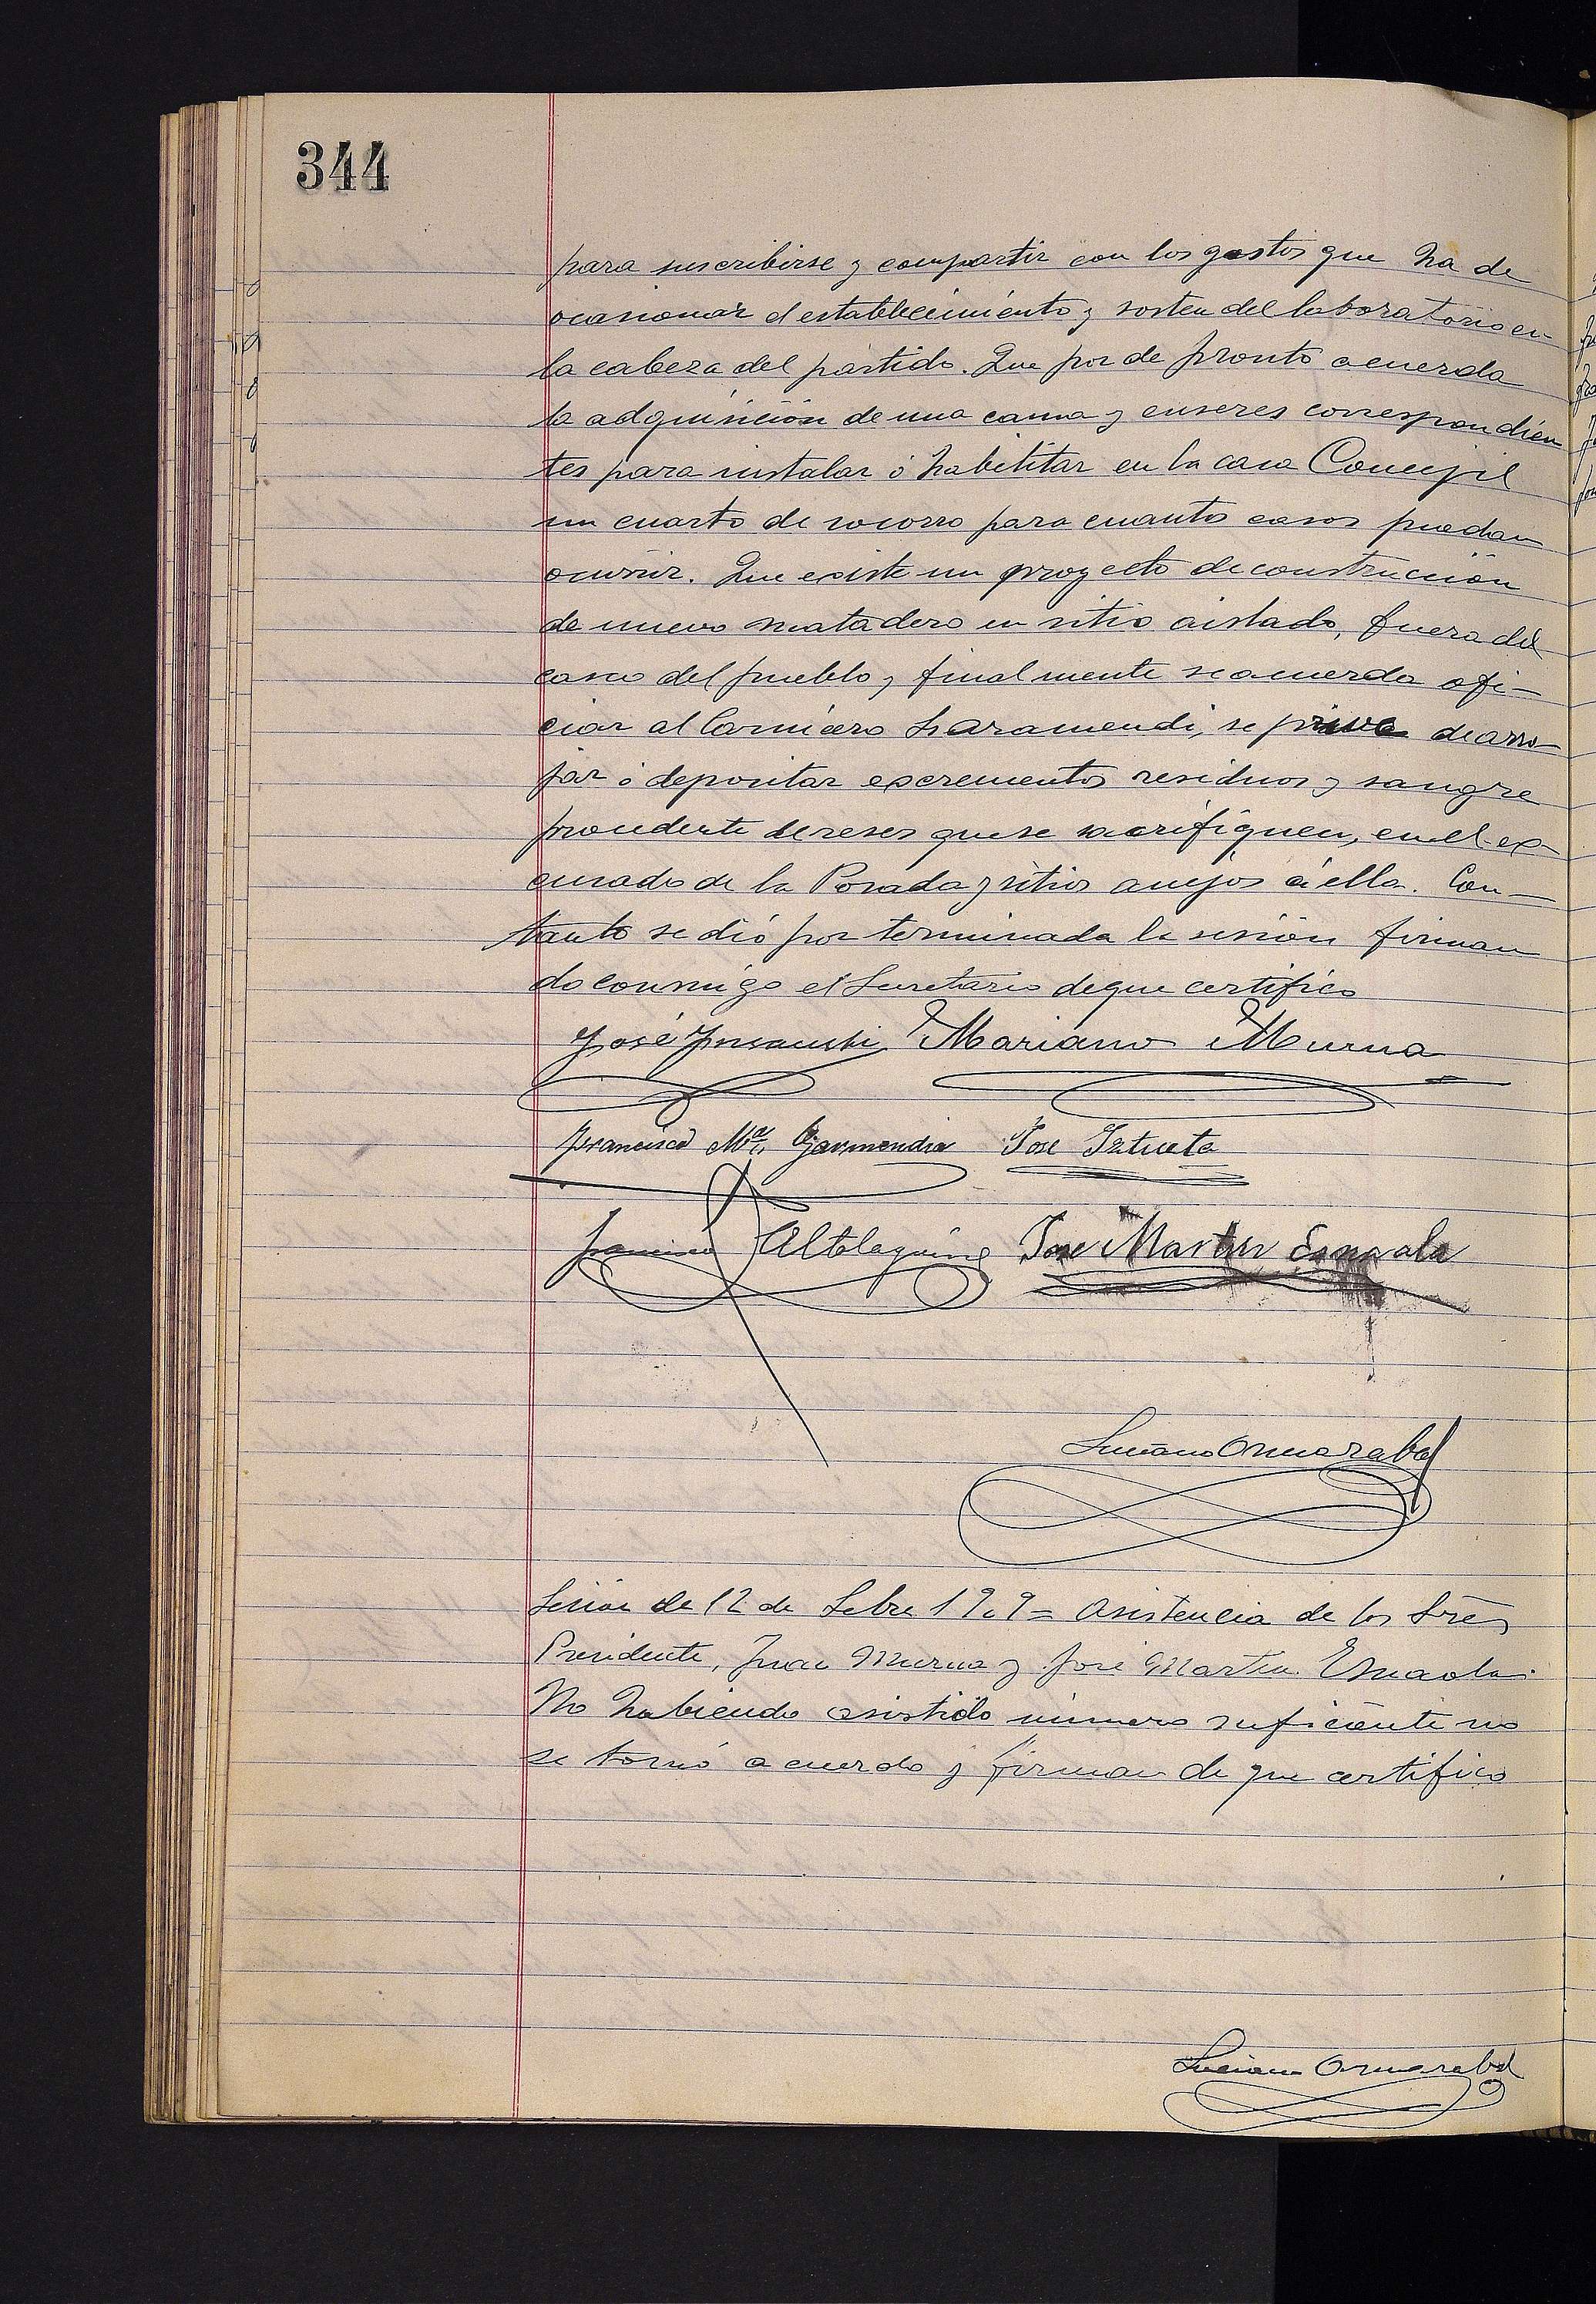 344
para suscribirse y compartir con los gastos que ha de
ocasionar el establecimiento y sosten del laboratorio en
la cabeza del partido. Que por de pronto acuerda
la adquisición de una cama y enseres correspondien
tes para instalar ó habilitar en la casa Concejil
un cuarto de socorro para cuantos casos puedan
ocurrir. Que existe un proyecto de construcción
de nuevo matadero en sitio aislado, fuera del
casco del pueblo, y finalmente se acuerda ofi-
ciar al Carnicero Laramendi, se prive de arro-
jar ó depositar excrementos residuos y sangre
procedente de reses que se sacrifiquen, en el ex-
cusado de la Posada y sitios anejos á ella. Con-
tanto se dió por terminada la sesión firman
do conmigo el Secretario de que certifico
José Mariano Murua
Francisco Mª Garmendia José Iztueta
Francisco Altolaguirre Jose Martin Esnaola
Luciano Ormazabal
Sesión de 12 de Sebre 1909 = Asistencia de los Sres
Presidente, Juan Murua y José Martin Esnaola.
No habiendo asistido número suficiente no
se tomó acuerdo y firman de que certifico
Luciano Ormazabal